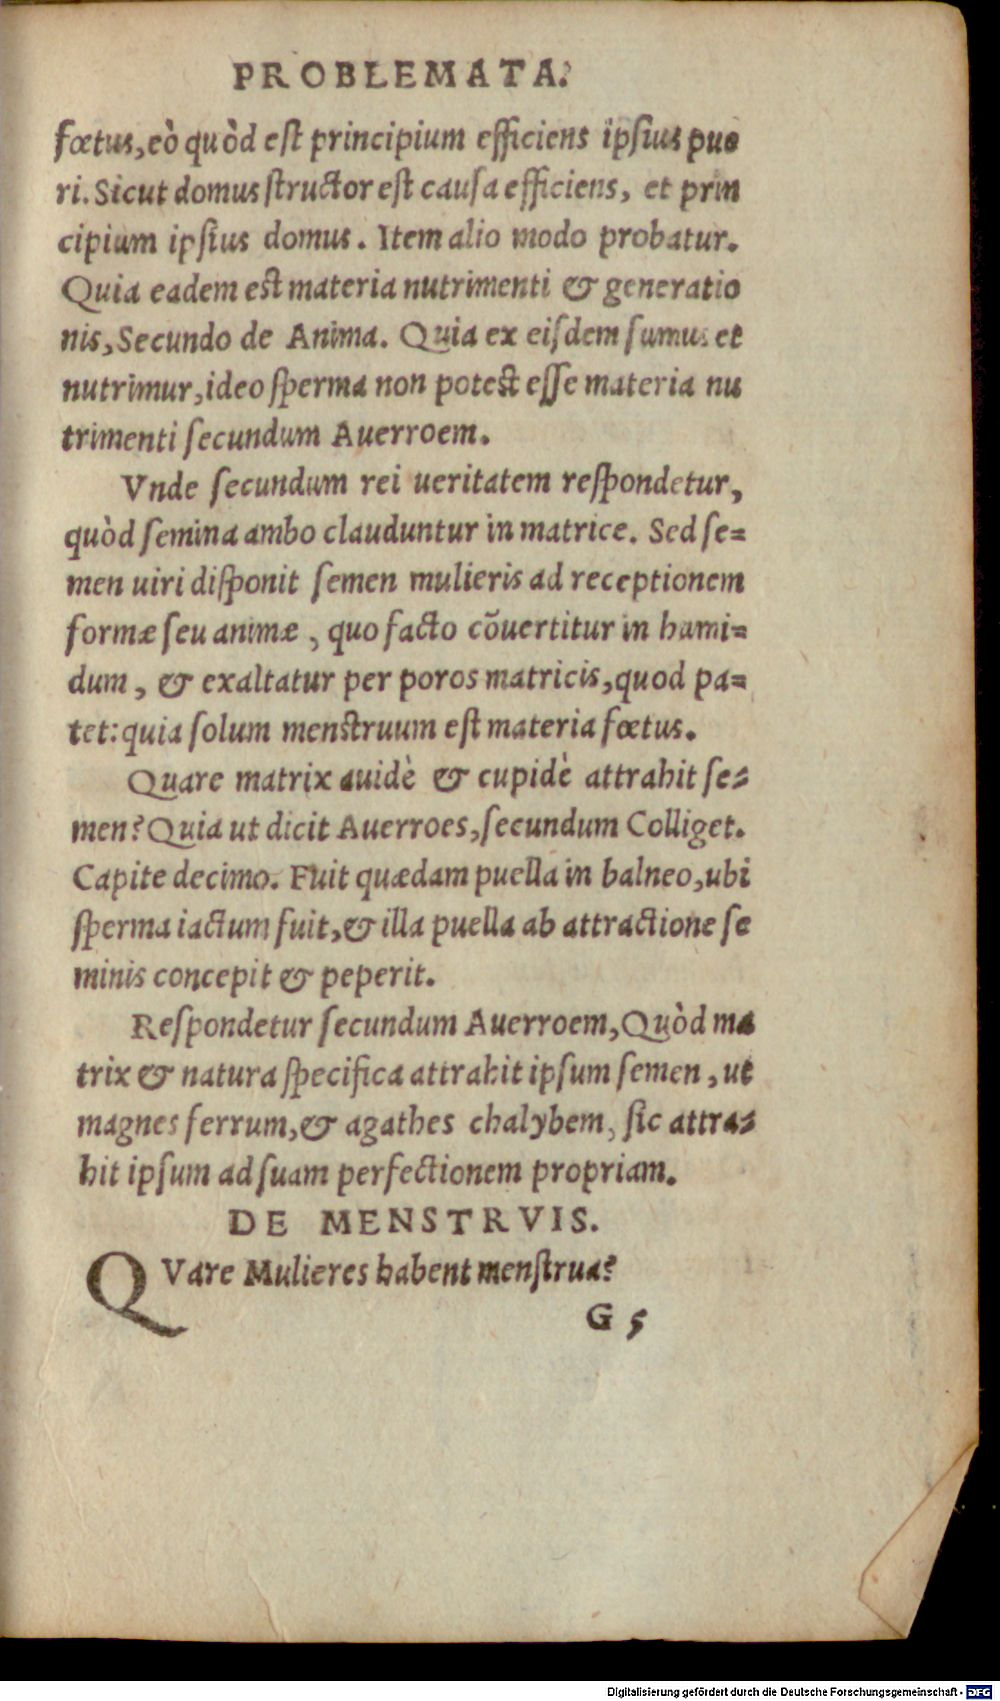 PROBLEMATA.
fœtus, eò quòd est principium efficiens ipsius pue
ri. Sicut domus structor est causa efficiens, et prin
cipium ipsius domus. Item alio modo probatur.
Quia eadem est materia nutrimenti & generatio
nis, Secundo de Anima. Quia ex eisdem sumus et
nutrimur, ideo sperma non potest esse materia nu
trimenti secundum Auerroem.
Vnde secundum rei ueritatem respondetur,
quòd semina ambo clauduntur in matrice. Sed se=
men uiri disponit semen mulieris ad receptionem
formæ seu animæ, quo facto cōuertitur in humi=
dum, & exaltatur per poros matricis, quod pa=
tet: quia solum menstruum est materia fœtus.
Quare matrix auidè & cupidè attrahit se=
men? Quia ut dicit Auerroes, secundum Colliget.
Capite decimo. Fuit quædam puella in balneo, ubi
sperma iactum fuit, & illa puella ab attractione se
minis concepit & peperit.
Respondetur secundum Auerroem, Quòd ma
trix & natura specifica attrahit ipsum semen, ut
magnes ferrum, & agathes chalybem, sic attra=
hit ipsum ad suam perfectionem propriam.
DE MENSTRVIS.
QVare Mulieres habent menstrua?
G 5
Digitalisierung gefördert durch die Deutsche Forschungsgemeinschaft - DFG